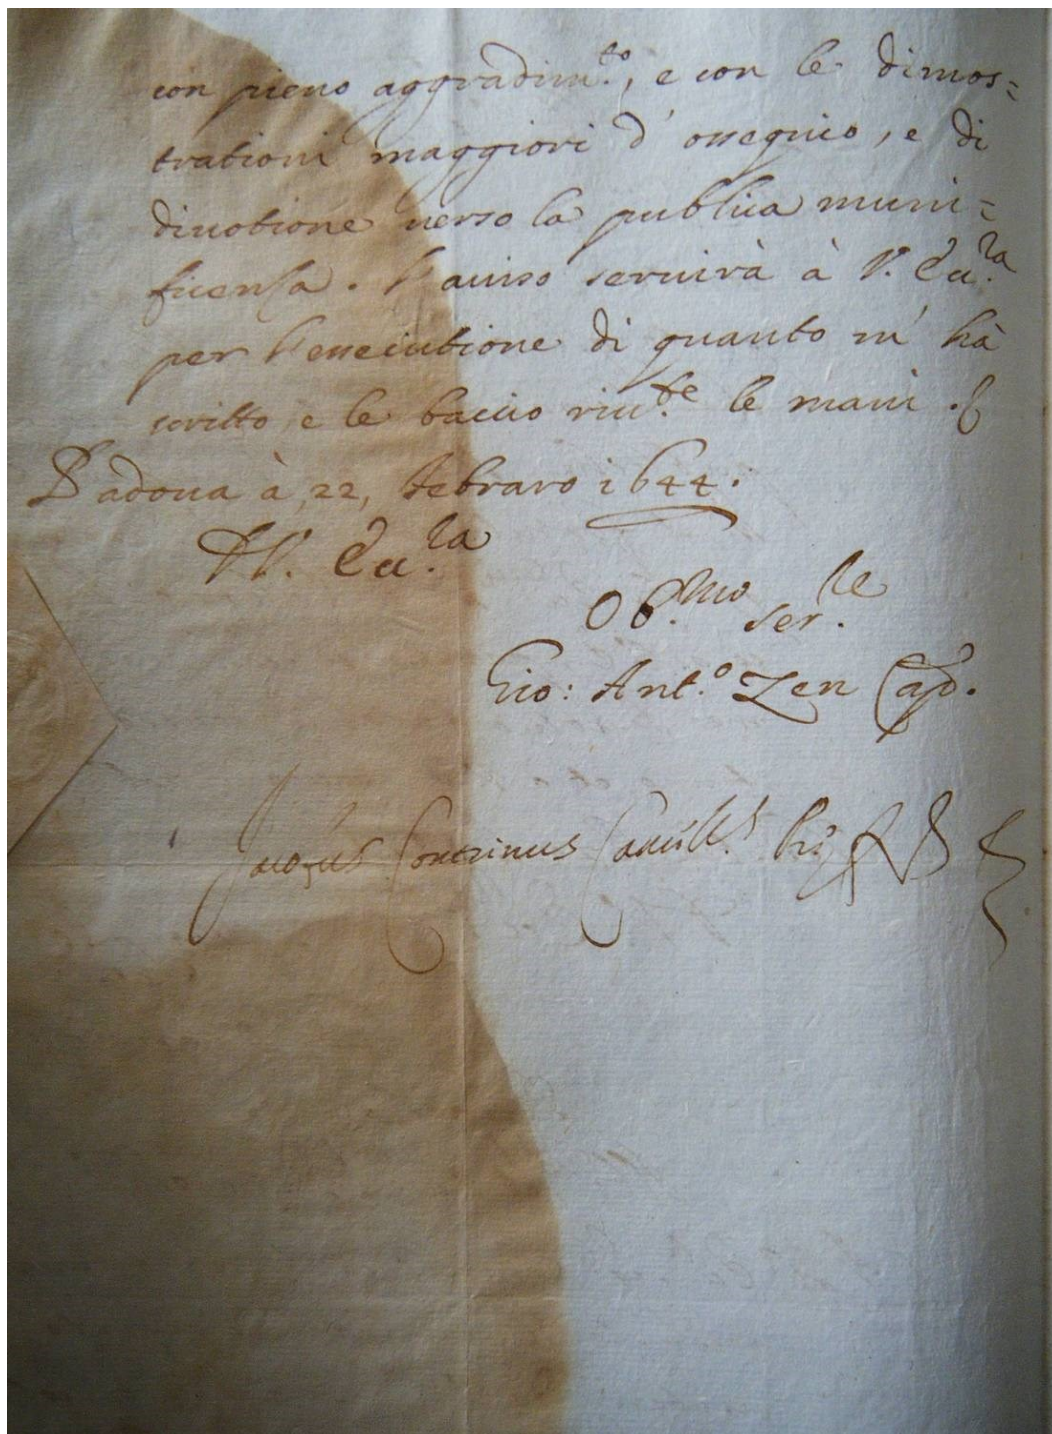 con pieno aggradim.to, e con le dimos=
trationi maggiori d' ossequio, e di
diuotione uerso la publica muni=
ficenza. l'auiso seruirà à V. Ecc.za
per l'essecutione di quanto m' hà
scritto, e le baccio riu.te le mani.
Padoua à 22, febraro 1644.
D V. Ecc.za
Ob.mo ser.re
Gio: Ant.o Zen Cap.
Contrinus